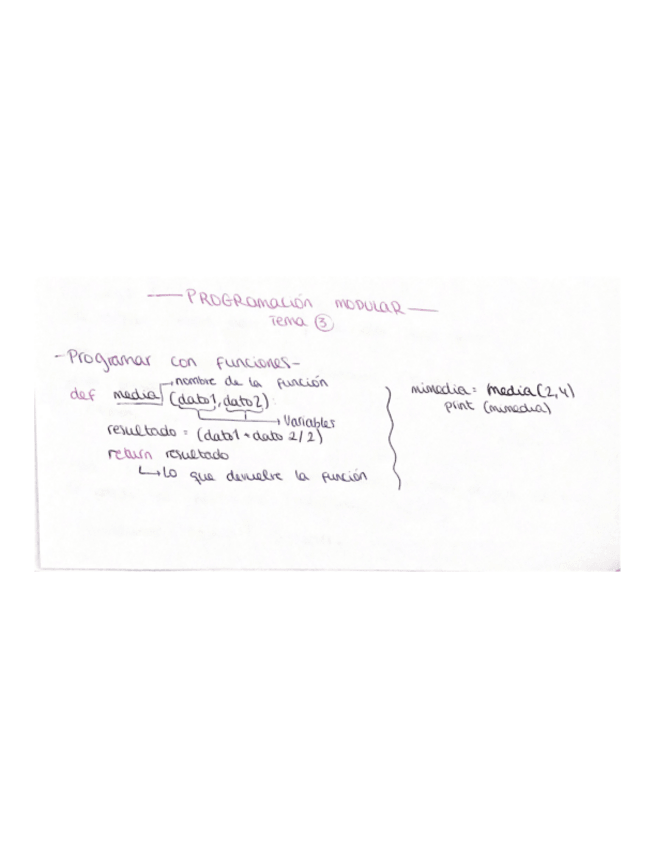 — PROGRAMACIÓN MODULAR —
Tema ③
- Programar con funciones -
→ nombre de la función
def media (dato1, dato2):
→ Variables
resultado = (dato1 + dato 2/2)
return resultado
↳ Lo que devuelve la función
mimedia = media(2,4)
print (mimedia)